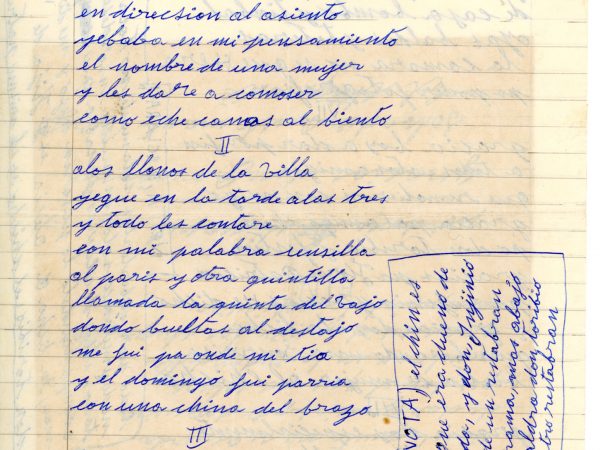 en direcsion al asiento
yebaba en mi pensamiento
el nombre de una mujer
y les dare a conoser
como eche canas al biento
II
alos llanos de la villa
yegue en la tarde alas tres
y todo les contare
con mi palabra sensilla
al paris y otra quintilla
llamada la quinta del vajo
dondo bueltas al destajo
me fui pa onde mi tia
y el domingo fui parria
con una china del brazo
III
NOTA) el chin es
que era dueño de
da, y don Injinio
de un restabran
rama, mas abajo
aldra don toribio
otro restabran